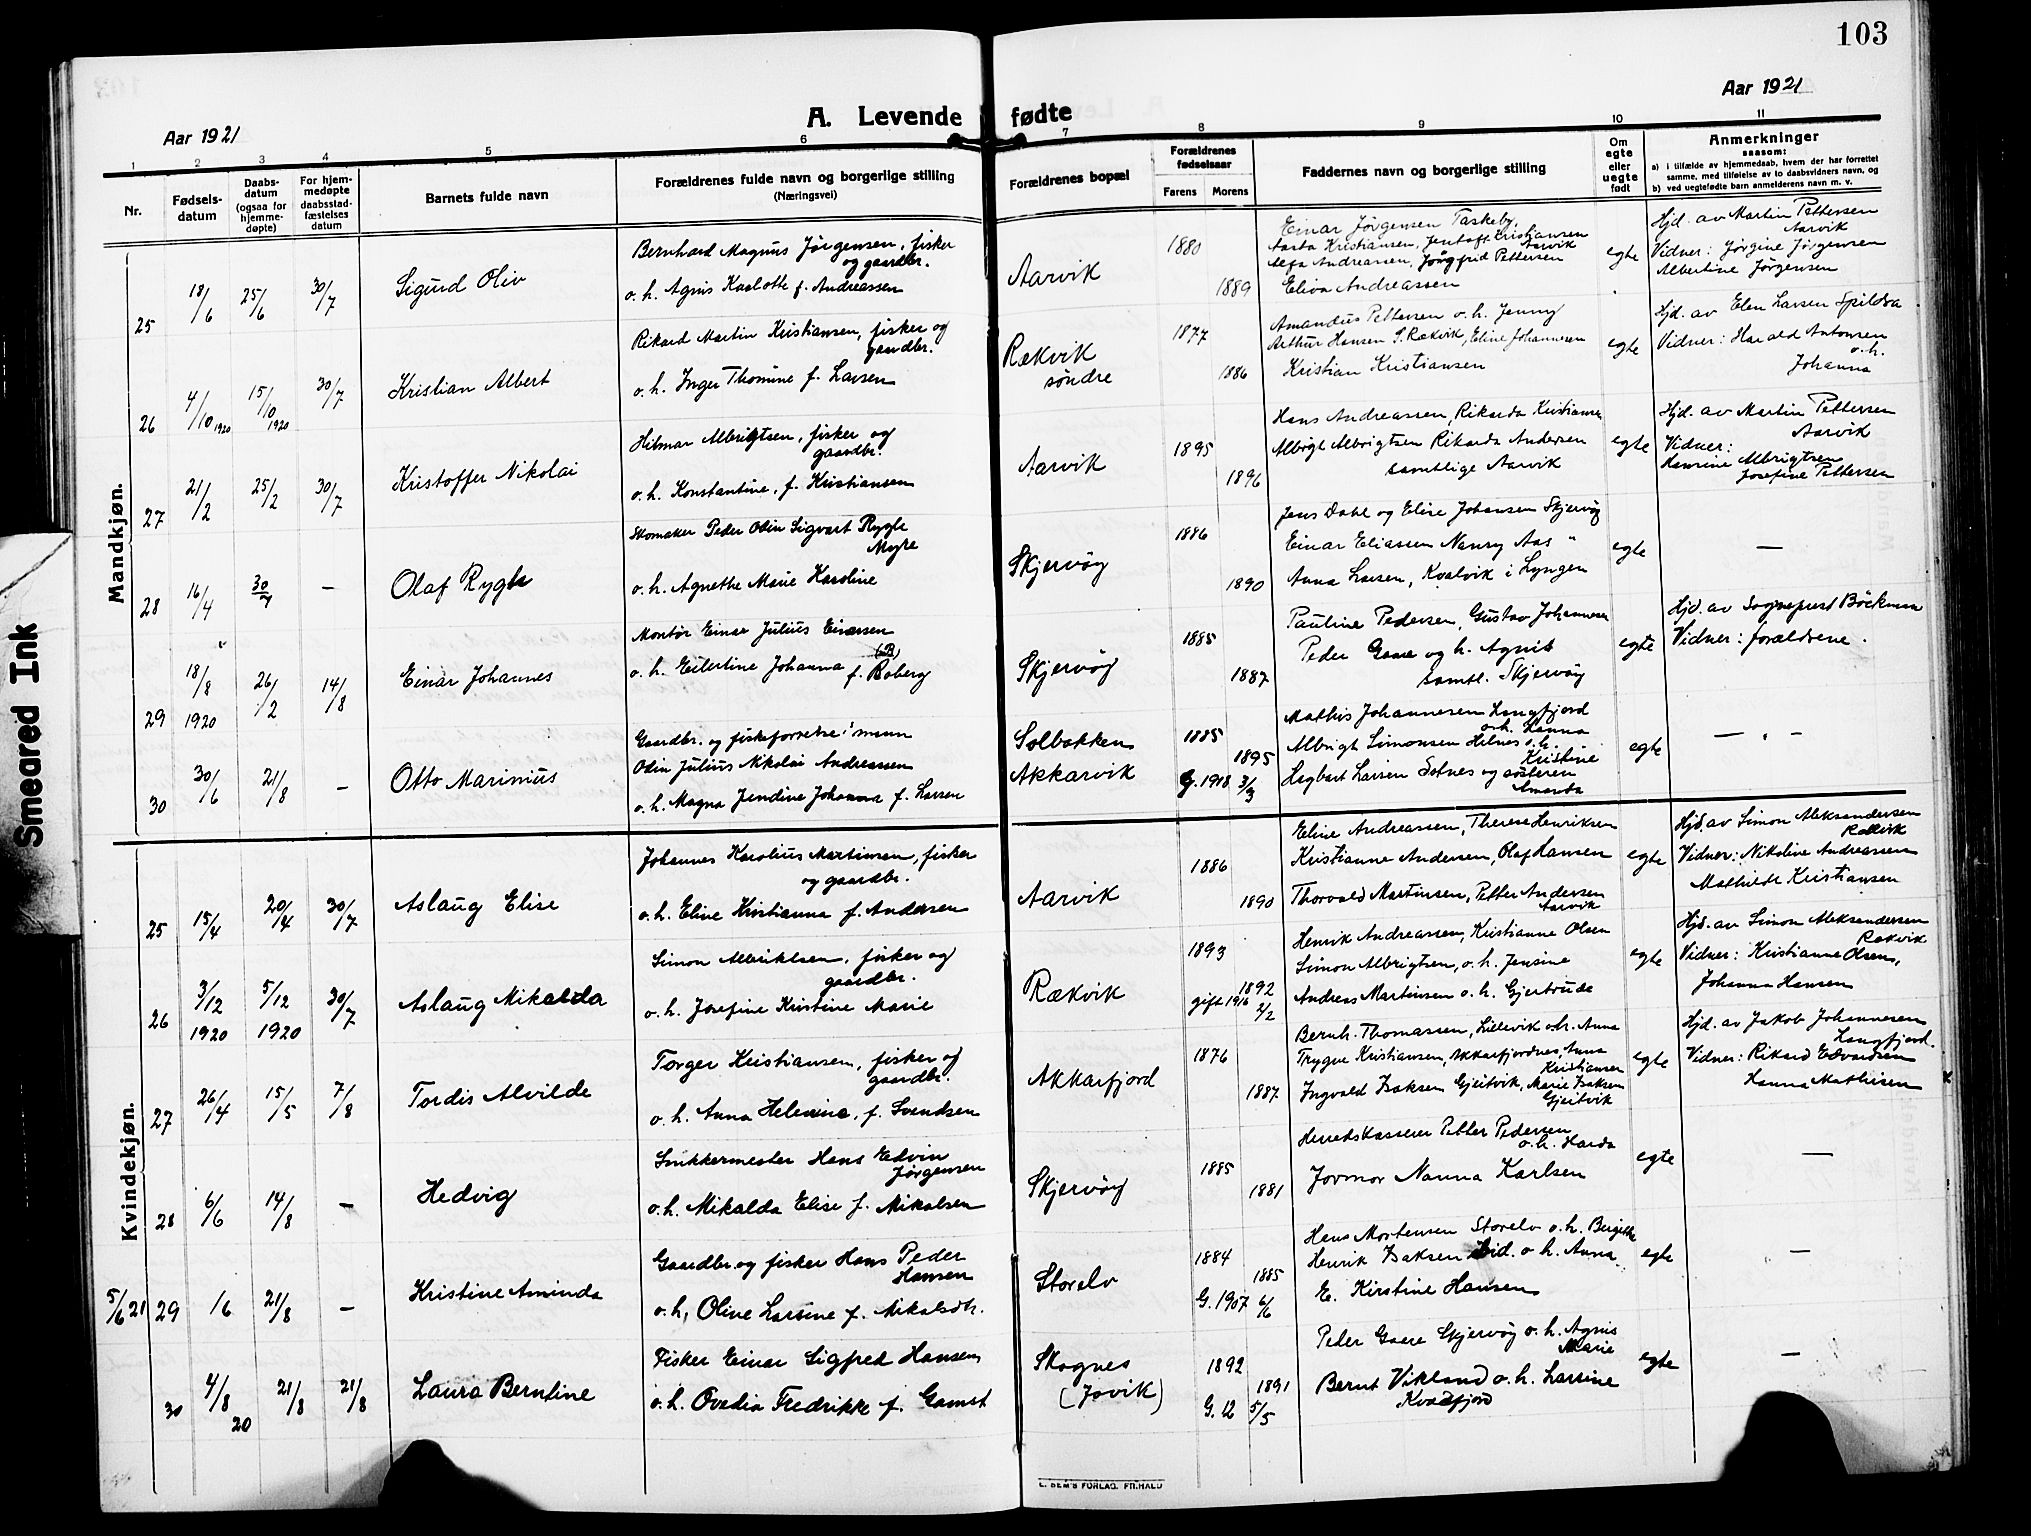 103
Aar 1921
Aar 1921
A. Levende fødte
1 2 3 4 5 6 7 8 9 10 11
Nr.
Fødsels-
datum
Daabs-
datum
(ogsaa for
hjemme-
døpte)
For hjem-
medøpte
daabsstad-
fæstelses
datum
Barnets fulde navn
Forældrenes fulde navn og borgerlige stilling
(Næringsvei)
Forældrenes bopæl
Forældrenes
fødselsaar
Farens Morens
Faddernes navn og borgerlige stilling
Om
egte
eller
uegte
født
Anmerkninger
saasom:
a) i tilfælde av hjemmedaab, hvem der har forrettet
samme, med tilføielse av to daabsvidners navn, og
b) ved uegtefødte barn anmelderens navn m. v.
Mandkjøn.
25 18/6 25/6 30/7 Sigurd Oliv
Bernhard Magnus Jørgensen, fisker
og gaardbr.
o. h. Agnis Karlotte f. Andreassen
Aarvik
1880
1889
Einar Jørgensen Taskeby,
Aasta Kristiansen, Jentoft Kristiansen
Aarvik
Alfa Andreassen, Jöngfrid Pettersen
Eliva Andreassen
egte
Hjd. av Martin Pettersen
Aarvik
Vidner: Jørgine Jørgensen
Albertine Jørgensen
26 4/10 1920 15/10 1920 30/7 Kristian Albert
Rikard Martin Kristiansen, fisker og
gaardbr.
o. h. Inger Thomine f. Larsen
Rækvik
søndre
1877
1886
Amandus Pettersen o. h. Jenny
Arthur Hansen S. Rækvik, Eline Johannesen
Kristian Kristiansen
egte
Hjd. av Elen Larsen Spildra
Vidner: Harald Antonsen
o. h.
Johanna
27 21/2 25/2 30/7 Kristoffer Nikolai
Hilmar Albrigtsen, fisker og
gaardbr.
o. h. Konstantine, f. Kristiansen
Aarvik
1895
1896
Hans Andreassen, Rikarda Kristiansen
Albrigt Albrigtsen Rikarda Andersen
samtlige Aarvik
egte
Hjd. av Martin Pettersen
Aarvik
Vidner:
Albrigtsen
Josefine Pettersen
28 16/4 30/7 — Olaf Rygh
Skomaker Peder Odin Sigvart Rygh
Myre
o. h. Agnethe Marie Karoline
Skjervøy
1886
1890
Jens Dahl og Elise Johansen Skjervøy
Einar Eliassen Nanny Aas "
Anna Larsen, Kvalvik i Lyngen
egte
—
29 18/8 1920 26/12 14/8 Einar Johannes
Montør Einar Julius Einarsen
o. h. Eilertine Johanna f. Boberg
(B)
Skjervøy
1885
1887
Pauline Pedersen, Gustav Johannesen
Peder Gaare og h. Agnis
Samtl. Skjervøy
egte
Hjd. av Sogneprest Böckman
Vidner: forældrene.
30 30/6 21/8 — Otto Marinius
Gaardbr. og fiskeforretn.'mann
Odin Julius Nikolai Andreassen
o. h. Magna Jendine Johanna f. Larsen
Solbakken
Akkarvik
1885
1895
G. 1918 3/3
Mathis Johannesen Langfjord
o. h. Hanna
Albrigt Simonsen Hilnes o. h.
Kristine
Hagbart Larsen Sotnes og søsteren
Amanda
egte
— " —
Kvindekjøn.
25 15/4 20/4 30/7 Aslaug Elise
Johannes Karolius Martinsen, fisker
og gaardbr.
o. h. Eline Kristianna f. Andersen
Aarvik
1886
1890
Eline Andreassen, Therese Henriksen
Kristianne Andersen, Olaf Hansen
Thorvald Martinsen, Petter Andersen
Aarvik
egte
Hjd. av Simon Aleksandersen
Rækvik
Vidner: Nikoline Andreassen
Mathilde Kristiansen
26 3/12 1920 5/12 1920 30/7 Aslaug Mikalda
Simon Albriktsen, fisker og
gaardbr.
o. h. Josefine Kristine Marie
Rækvik
1893
1892
gift 1916 2/2
Henrik Andreassen, Kristianne Olsen
Simon Albrigtsen, o. h. Jensine
Andreas Martinsen o. h. Gjertrude
egte
Hjd. av Simon Aleksandersen
Rækvik
Vidner: Kristianne Olsens,
Johanna Hansen
27 26/4 15/5 7/8 Tordis Alvilde
Torger Kristiansen, fisker og
gaardbr.
o. h. Anna Helenine, f. Svendsen
Akkarfjord
1876
1887
Bernh. Thomassen, Lillevik o. h. Anna
Trygve Kristiansen, Akkarfjordnes, Anna
Kristiansen
Ingvald Isaksen Gjeitvik, Marie Isaksen
Gjeitvik
egte
Hjd. av Jakob Johannesen
Langfjord.
Vidner: Rikard Edvardsen
Hanna Mathisen
28 6/6 14/8 — Hedvig
Snikkermester Hans Edvin
Jørgensen
o. h. Mikalda Elise f. Mikalsen
Skjervøy
1885
1881
Herredskasserer Petter Pedersen
o. h. Harda
Jovmor Nanna Karlsen
egte
—
5/6 21 29 1/6 21/8 — Kristine Aminda
Gaardbr. og fisker Hans Peder
Hansen
o. h. Oline Larsine f. Mikalsdtr.
Storelv
1884
1885
G. 1907 6/6
Hans Mortensen Storelv o. h. Bergitte
Henrik Isaksen ibid. o. h. Anna
E. Kirstine Hansen
egte
—
30 4/8 20 21/8 21/8 Laura Berntine
Fisker Einar Sigfred Hansen
o. h. Ovedia Fredrikke f. Gamst
Skognes
(Jovik)
1892
1891
G. 12 5/5
Peder Gaare Skjervøy o. h. Agnis
Marie
Bernt Vikland o. h. Larsine
Kvænfjord
egte
—
E. SEM'S FORLAG. FR.HALD
Smeared Ink